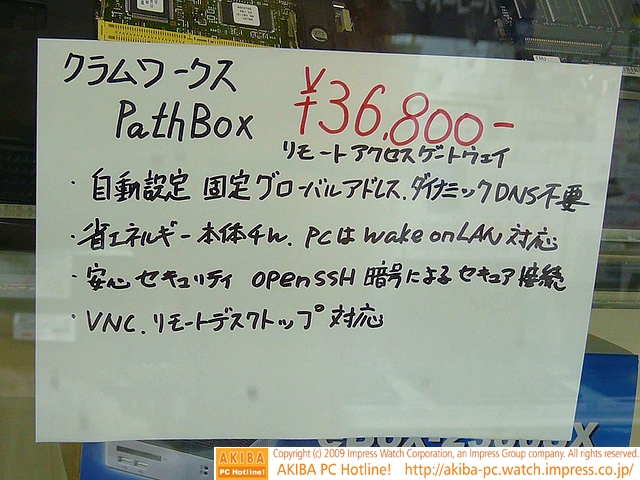 クラムワークス
PathBox ¥36,800-
リモートアクセスゲートウェイ
・自動設定 固定グローバルアドレス、ダイナミックDNS不要
・省エネルギー本体4W、PCはwake on LAN対応
・安心セキュリティ openSSH暗号によるセキュア接続
・VNC、リモートデスクトップ対応
AKIBA
PC Hotline!
Copyright (c) 2009 Impress Watch Corporation, an Impress Group company. All rights reserved.
AKIBA PC Hotline! http://akiba-pc.watch.impress.co.jp/